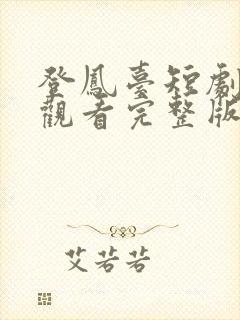 登鳳臺短劇
觀看完整版
艾若若